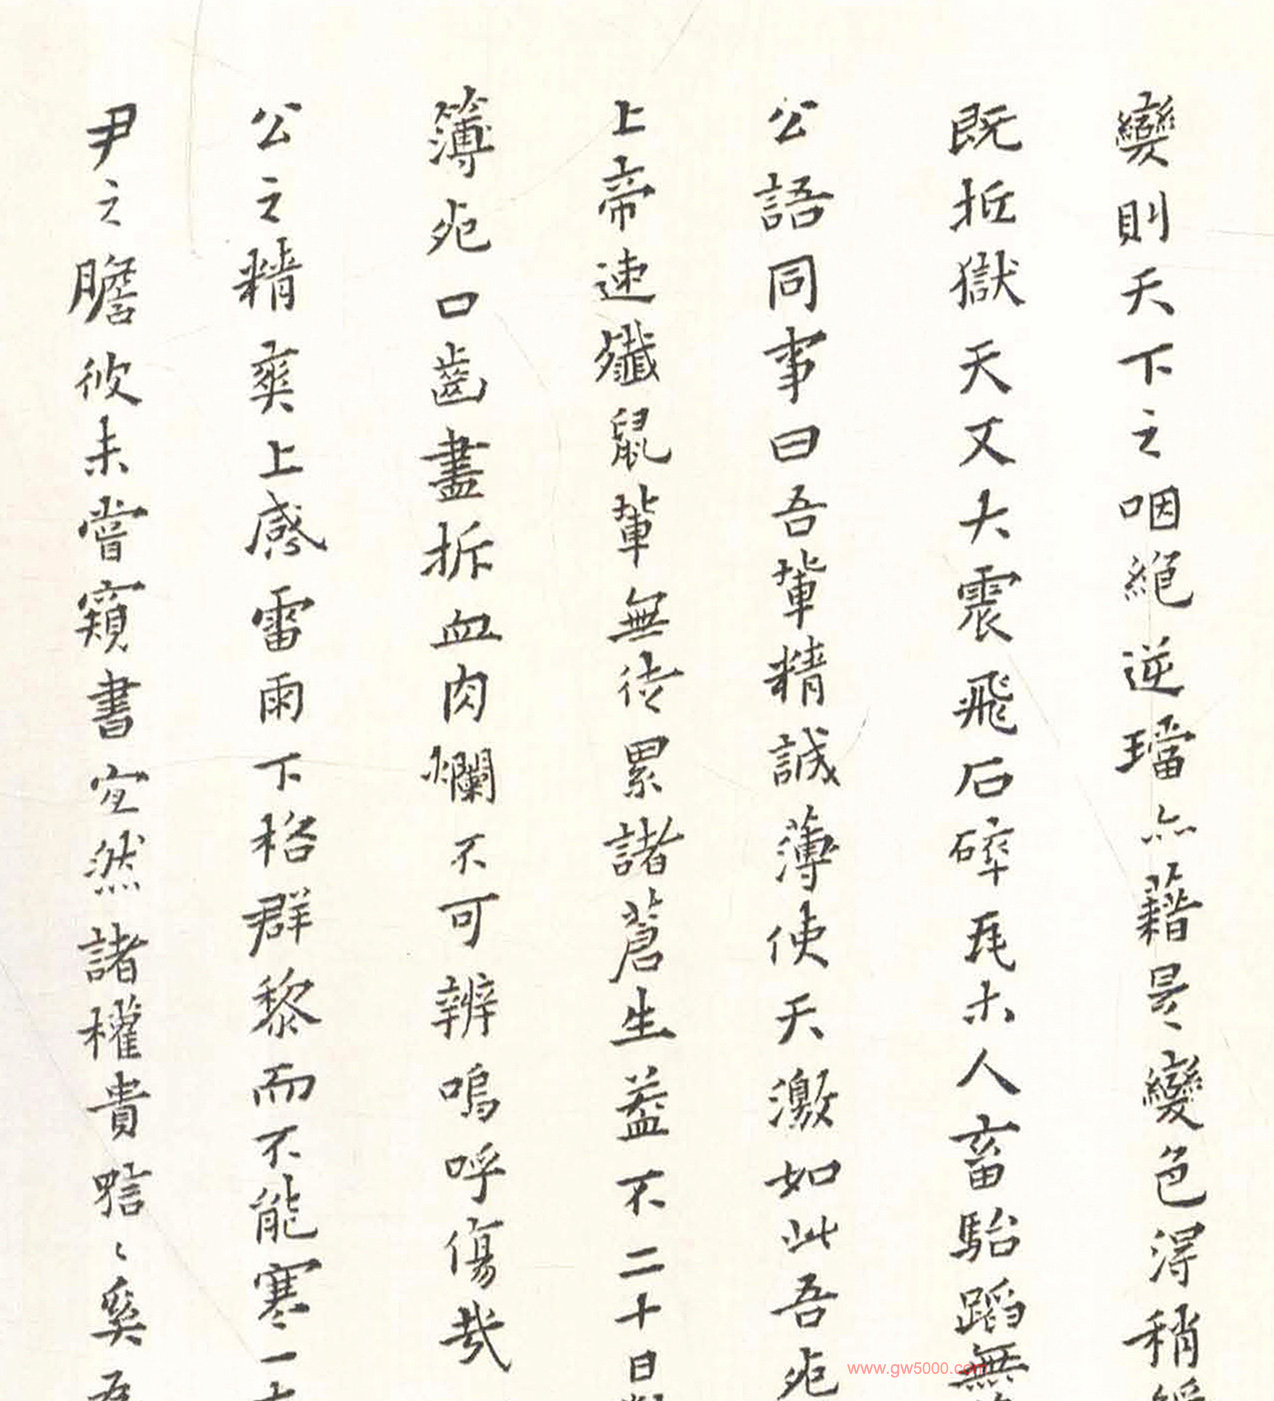 變則天下之咽絕逆璫亦藉是變色得稍
既抵獄天又大震飛石碎瓦木人畜駘蹈無
公語同事曰吾輩精誠薄使天激如此吾死
上帝速殲鼠輩無徒累諸蒼生益不二十日
簿死口齒盡拆血肉爛不可辨嗚呼傷哉
公之精爽上感雷雨下格群黎而不能寒一
尹之膽彼未嘗窺書宜然諸權貴㗖〻奚
www.gw5000.com